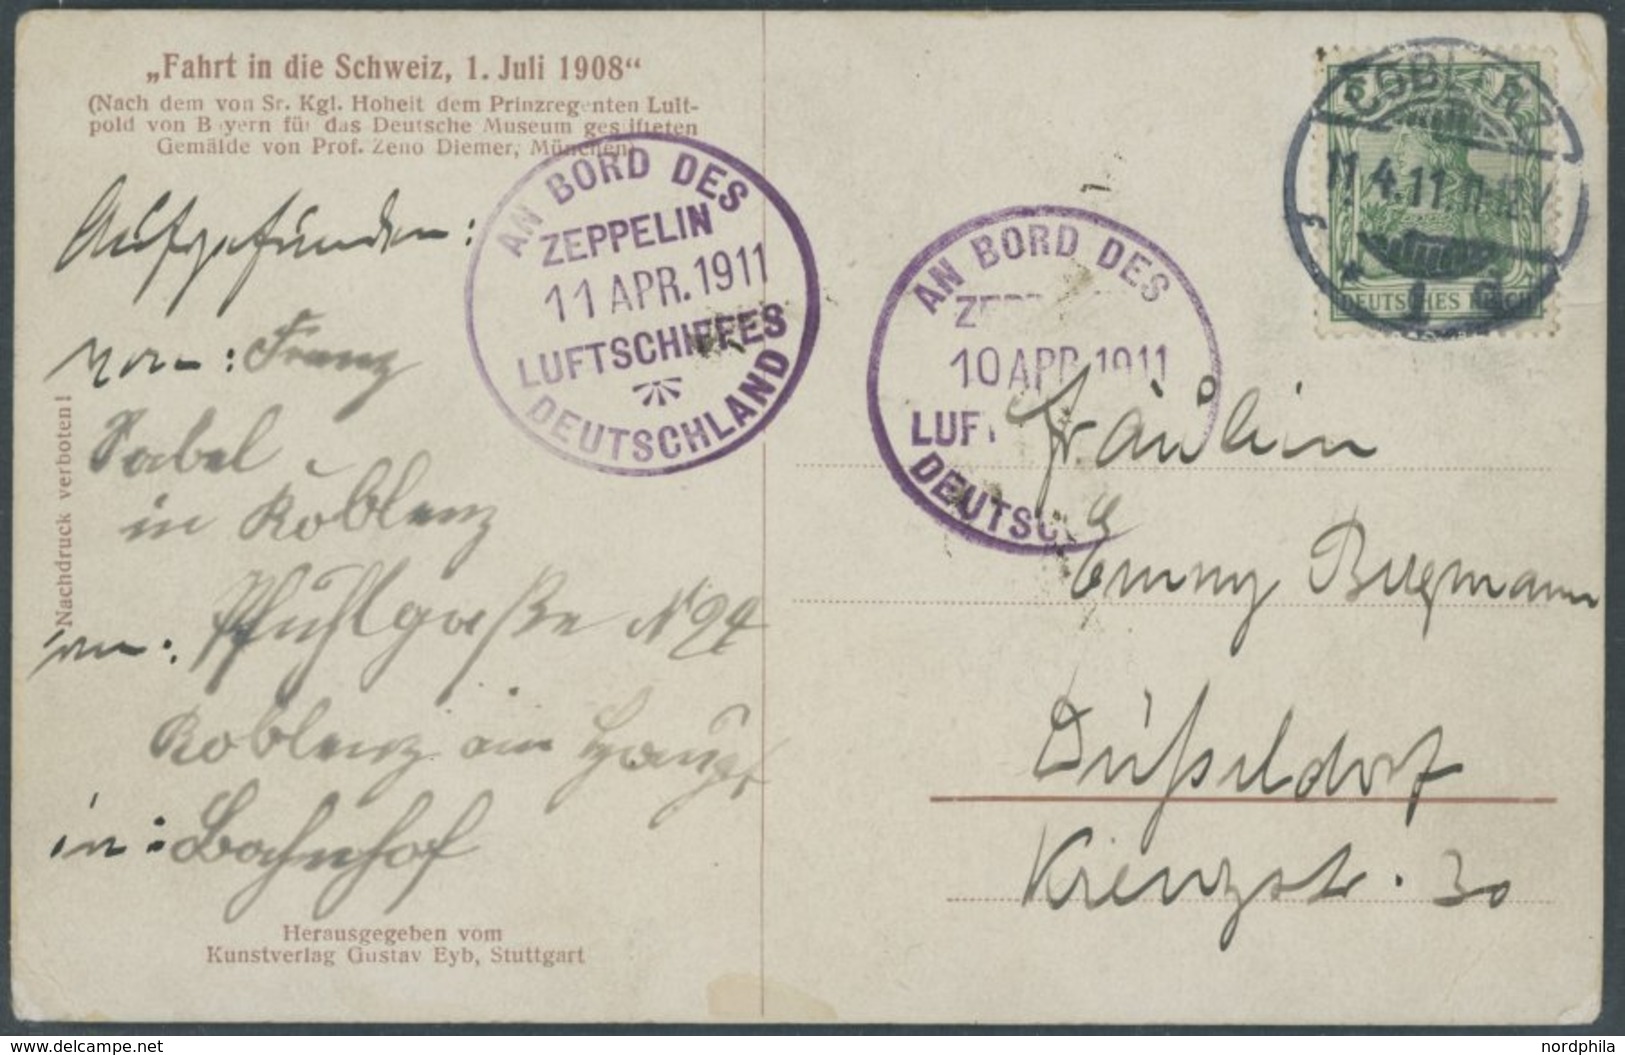 „Fahrt in die Schweiz, 1. Juli 1908“
(Nach dem von Sr. Kgl. Hoheit dem Prinzregenten Luit-
pold von Bayern für das Deutsche Museum gestifteten
Gemälde von Prof. Zeno Diemer, München)
Aufgefunden:
von: Franz
Sabel
in Koblenz
Pfuhlgaße No 24
Koblenz am Haupt
in: Bahnhof
Nachdruck verboten!
Herausgegeben vom
Kunstverlag Gustav Eyb, Stuttgart
AN BORD DES
ZEPPELIN
11 APR. 1911
LUFTSCHIFFES
DEUTSCHLAND
AN BORD DES
ZEPP
10 APR. 1911
LUF
DEUTSC
COBLENZ
11.4.11. 11-12V
* 1 g
DEUTSCHES REICH
Fräulein
Emmy
Düßeldorf
30
nordphila
www.delcampe.net/de